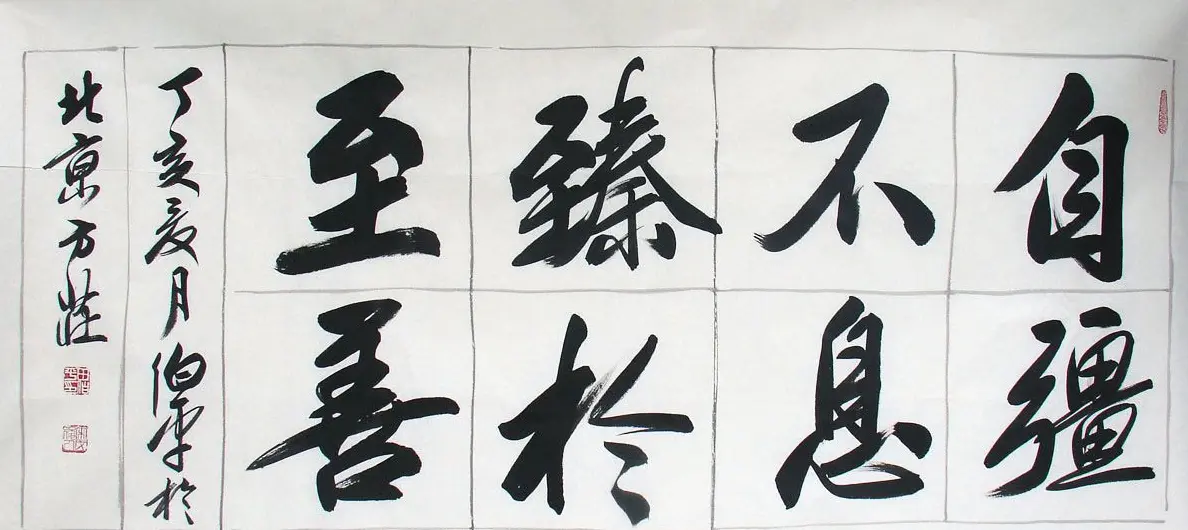 自彊
不息
臻於
至善
丁亥夏月伯平於
北京方莊